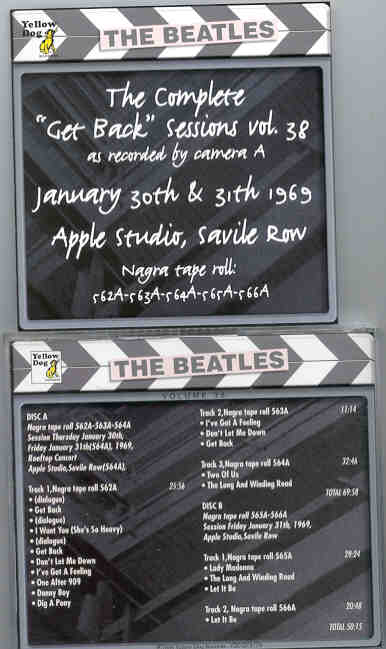 Yellow Dog
RECORDS
THE BEATLES
The Complete
"Get Back" Sessions vol. 38
as recorded by camera A
January 30th & 31th 1969
Apple Studio, Savile Row
Nagra tape roll:
562A-563A-564A-565A-566A
Yellow Dog
THE BEATLES
VOLUME 38
DISC A
Nagra tape roll 562A-563A-564A
Session Thursday January 30th,
Friday January 31th(564A), 1969,
Rooftop Concert
Apple Studio,Savile Row(564A).
Track 1,Nagra tape roll 562A 25:56
• (dialogue)
• Get Back
• (dialogue)
• I Want You (She's So Heavy)
• (dialogue)
• Get Back
• Don't Let Me Down
• I've Got A Feeling
• One After 909
• Danny Boy
• Dig A Pony
Track 2,Nagra tape roll 563A 11:14
• I've Got A Feeling
• Don't Let Me Down
• Get Back
Track 3,Nagra tape roll 564A 32:46
• Two Of Us
• The Long And Winding Road
TOTAL 69:58
DISC B
Nagra tape roll 565A-566A
Session Friday January 31th, 1969,
Apple Studio,Savile Row
Track 1,Nagra tape roll 565A 29:24
• Lady Madonna
• The Long And Winding Road
• Let It Be
Track 2, Nagra tape roll 566A 20:48
• Let It Be
TOTAL 50:15